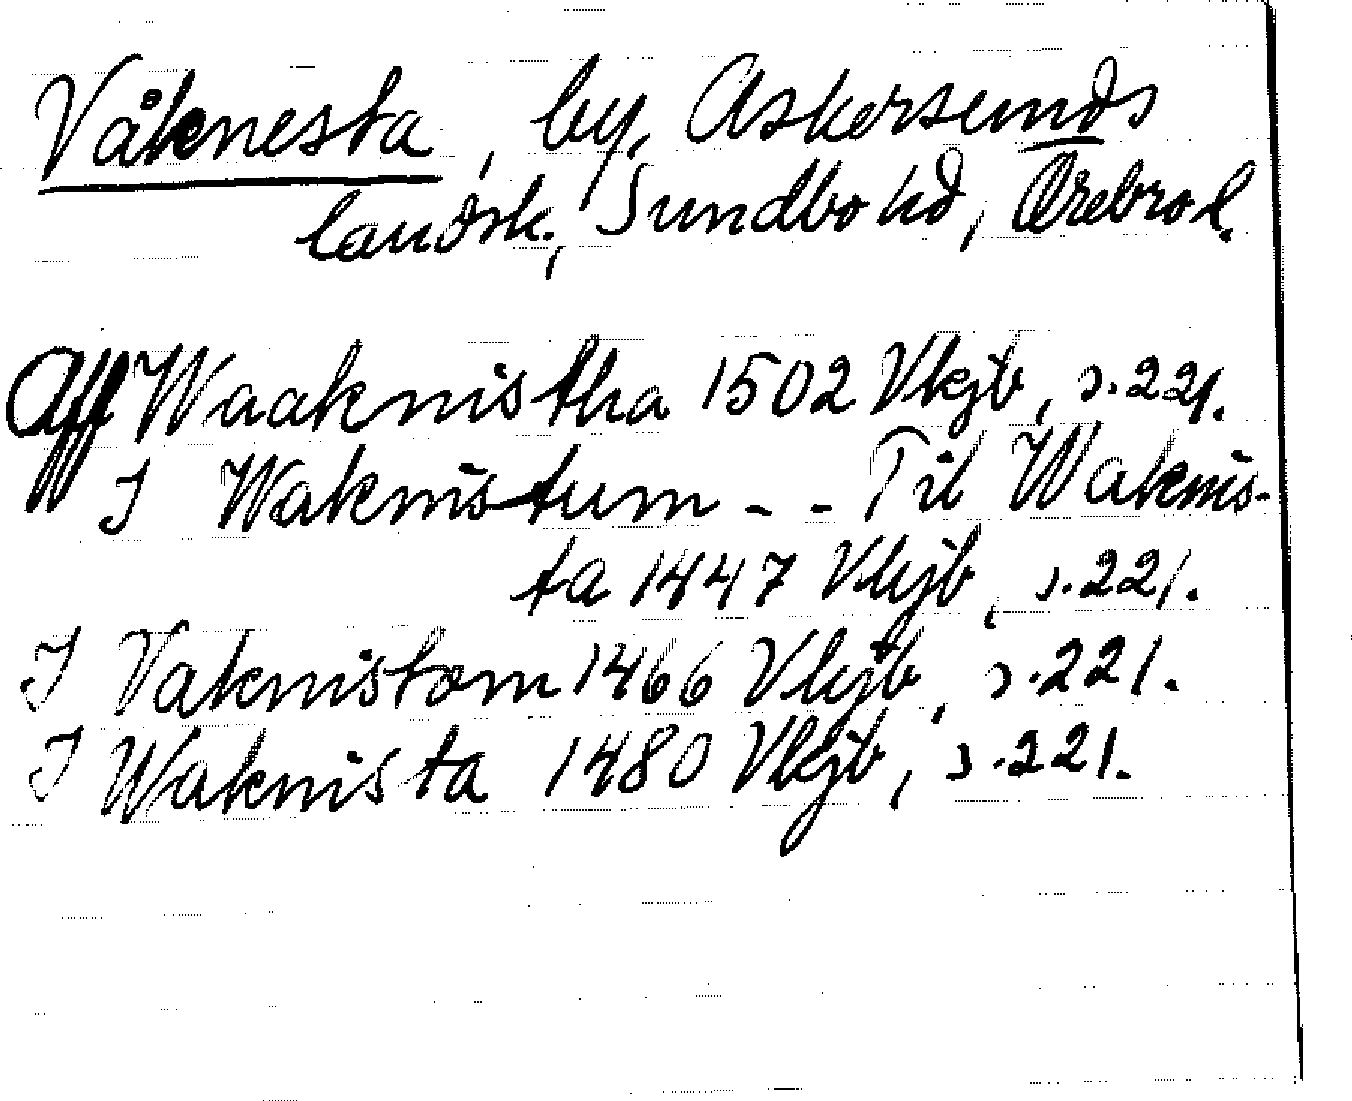 Våknesta, by, Askersunds
landsk., Sundbo hd, Örebro l.
Aff Waaknistha 1502 Vkjb, s. 221.
I Waknistum - - Til Waknis-
ta 1447 Vkjb, s. 221.
I Vaknistom 1466 Vkjb, s. 221.
I Waknista 1480 Vkjb, s. 221.